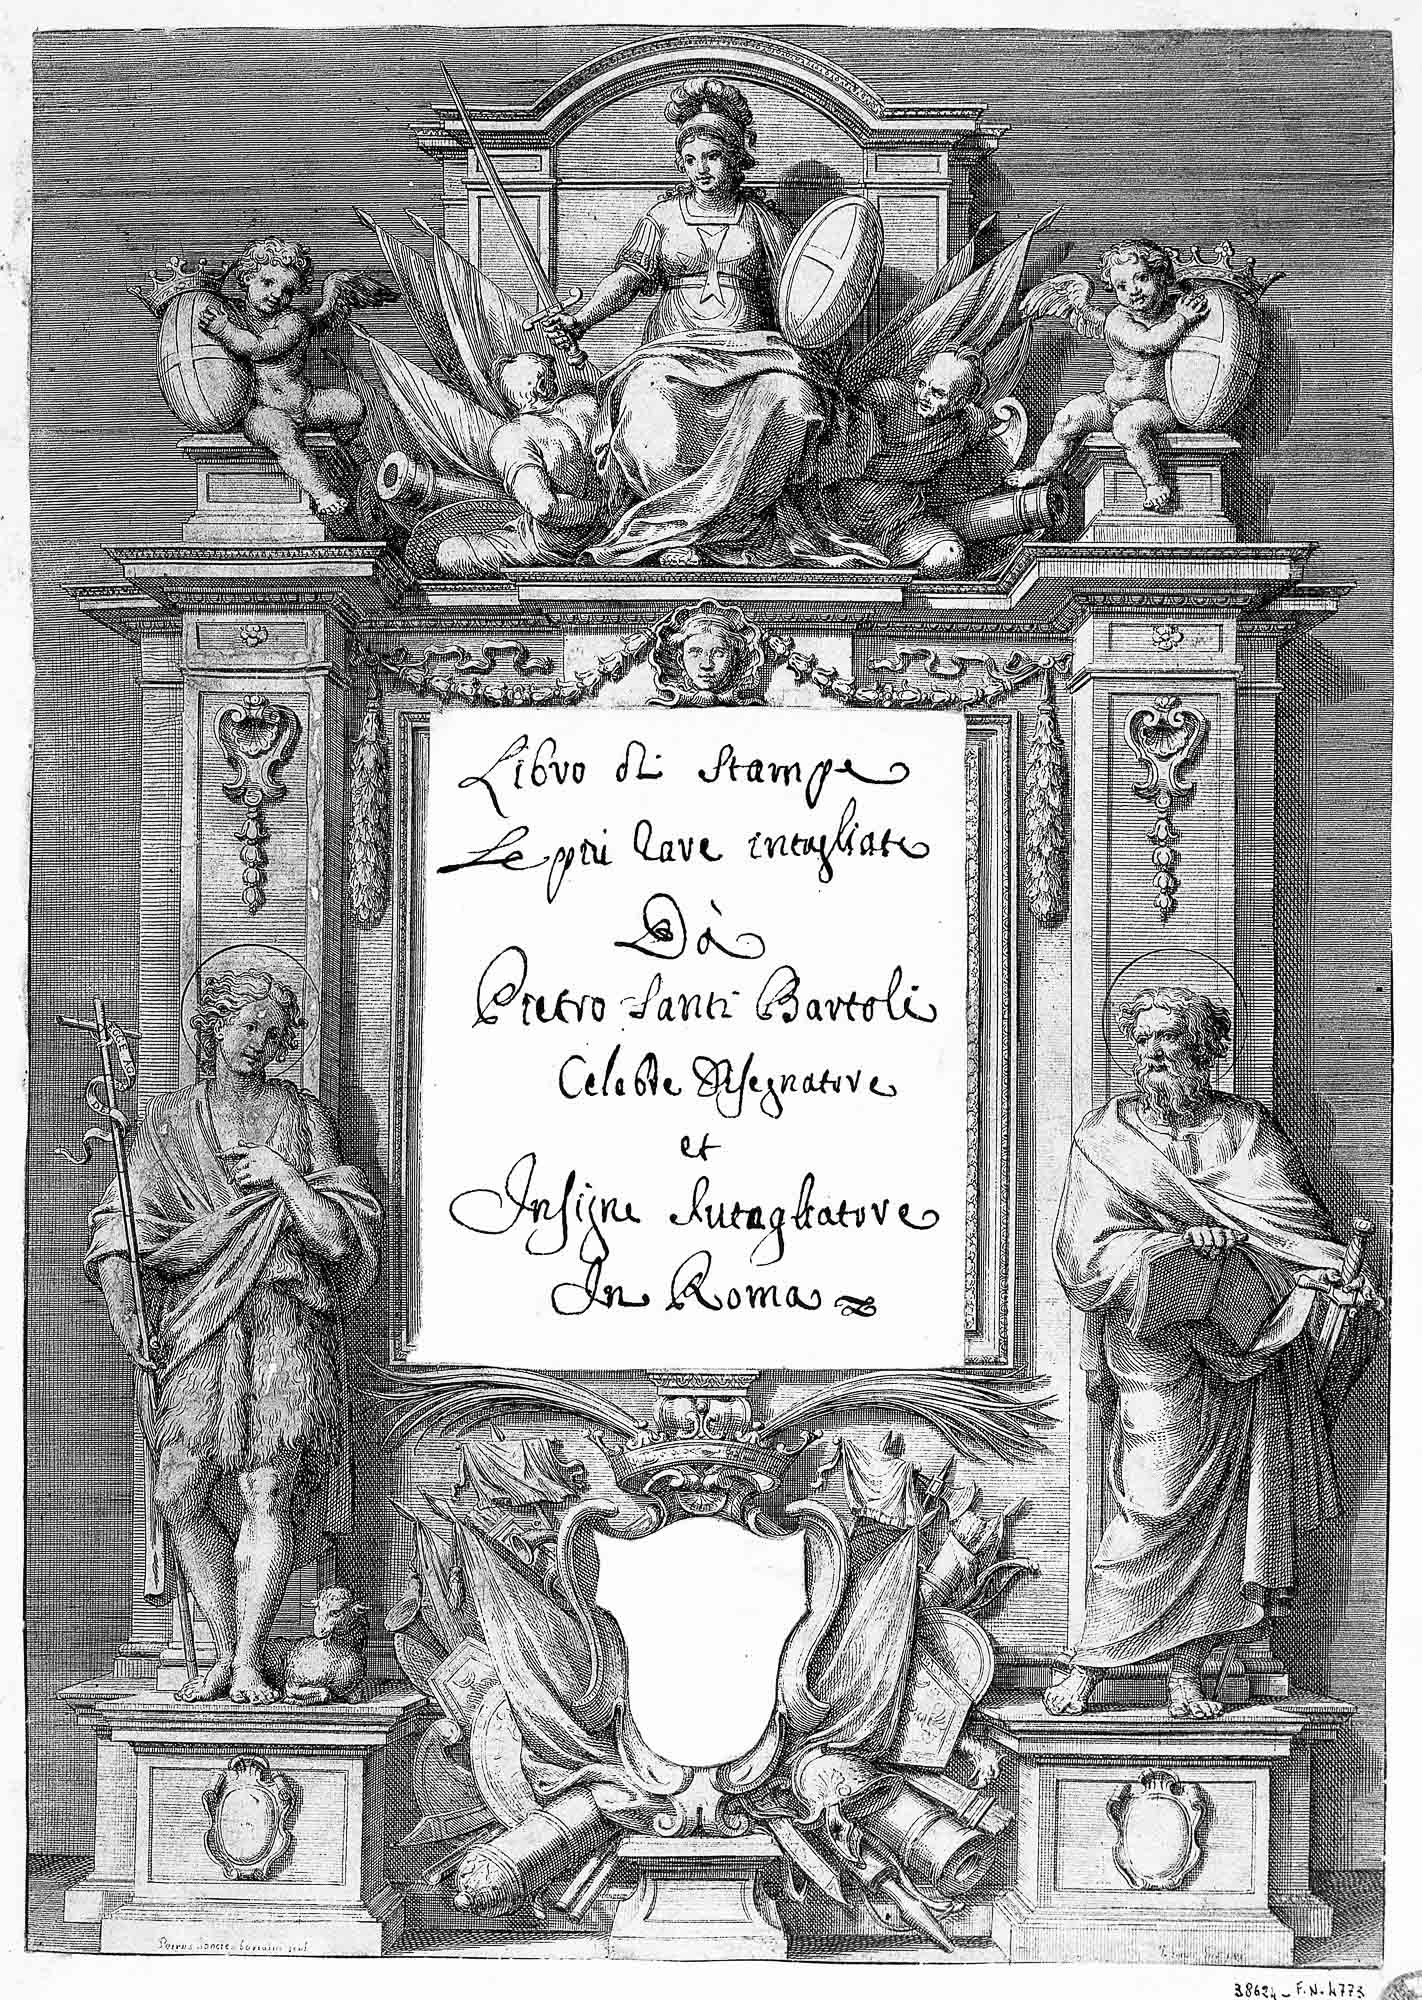 Libro di Stampe
Le più Rare intagliate
Dà
Pietro Santi Bartoli
Celebre Disegnatore
et
Insigne Intagliatore
In Roma
ECCE AG
Petrus Sanctes Bartolus scul.
38624 - F.N. 4773